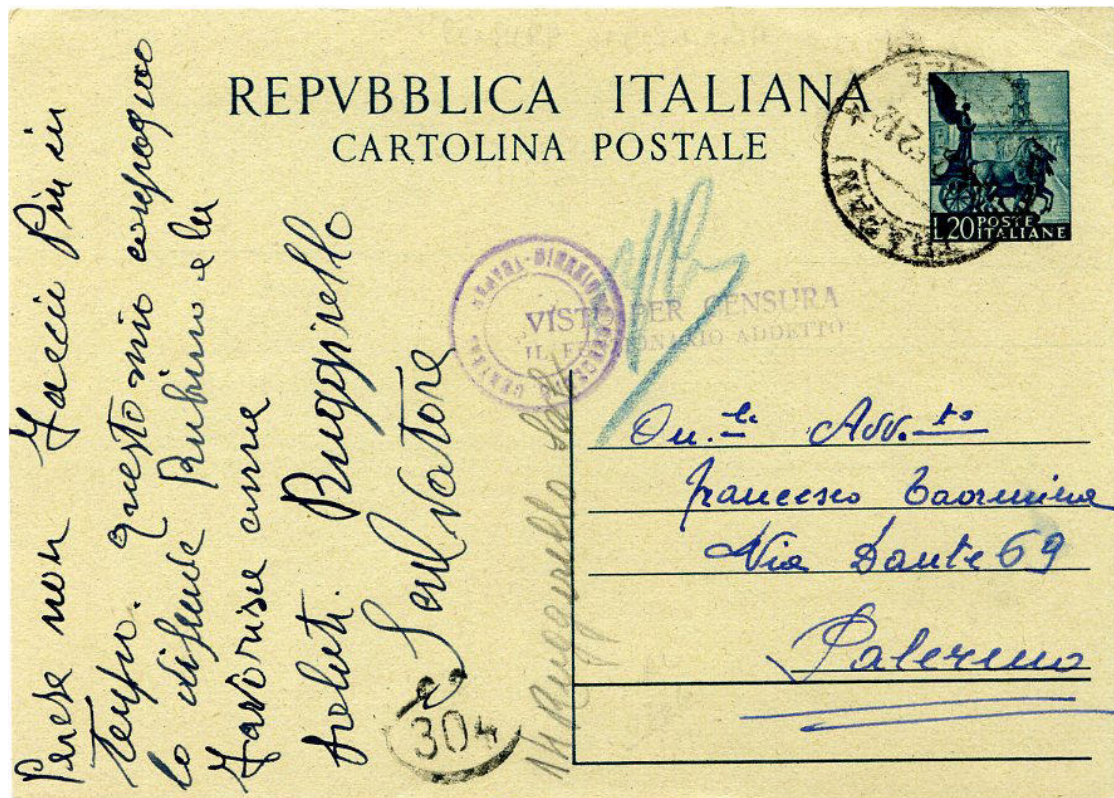 REPVBBLICA ITALIANA
CARTOLINA POSTALE
L.20 POSTE
ITALIANE
TRAPANI
VISTO PER CENSURA
IL FUNZIONARIO ADDETTO
On.le Avv.to
Francesco Taormina
Via Dante 69
Palermo
non Faccio Piu in
tempo. questo mio compagno
lo difende Rubino e lu
Favorisce
Saluti. Ruggirello
Salvatore
304
Ruggirello Salv